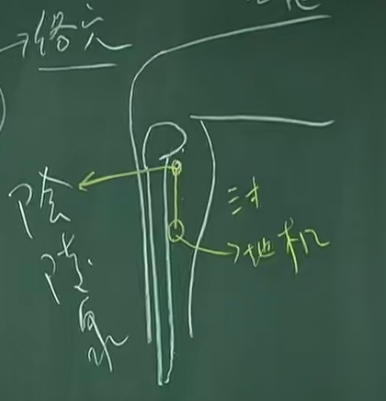 络穴
阴
陵
泉
三寸
地机